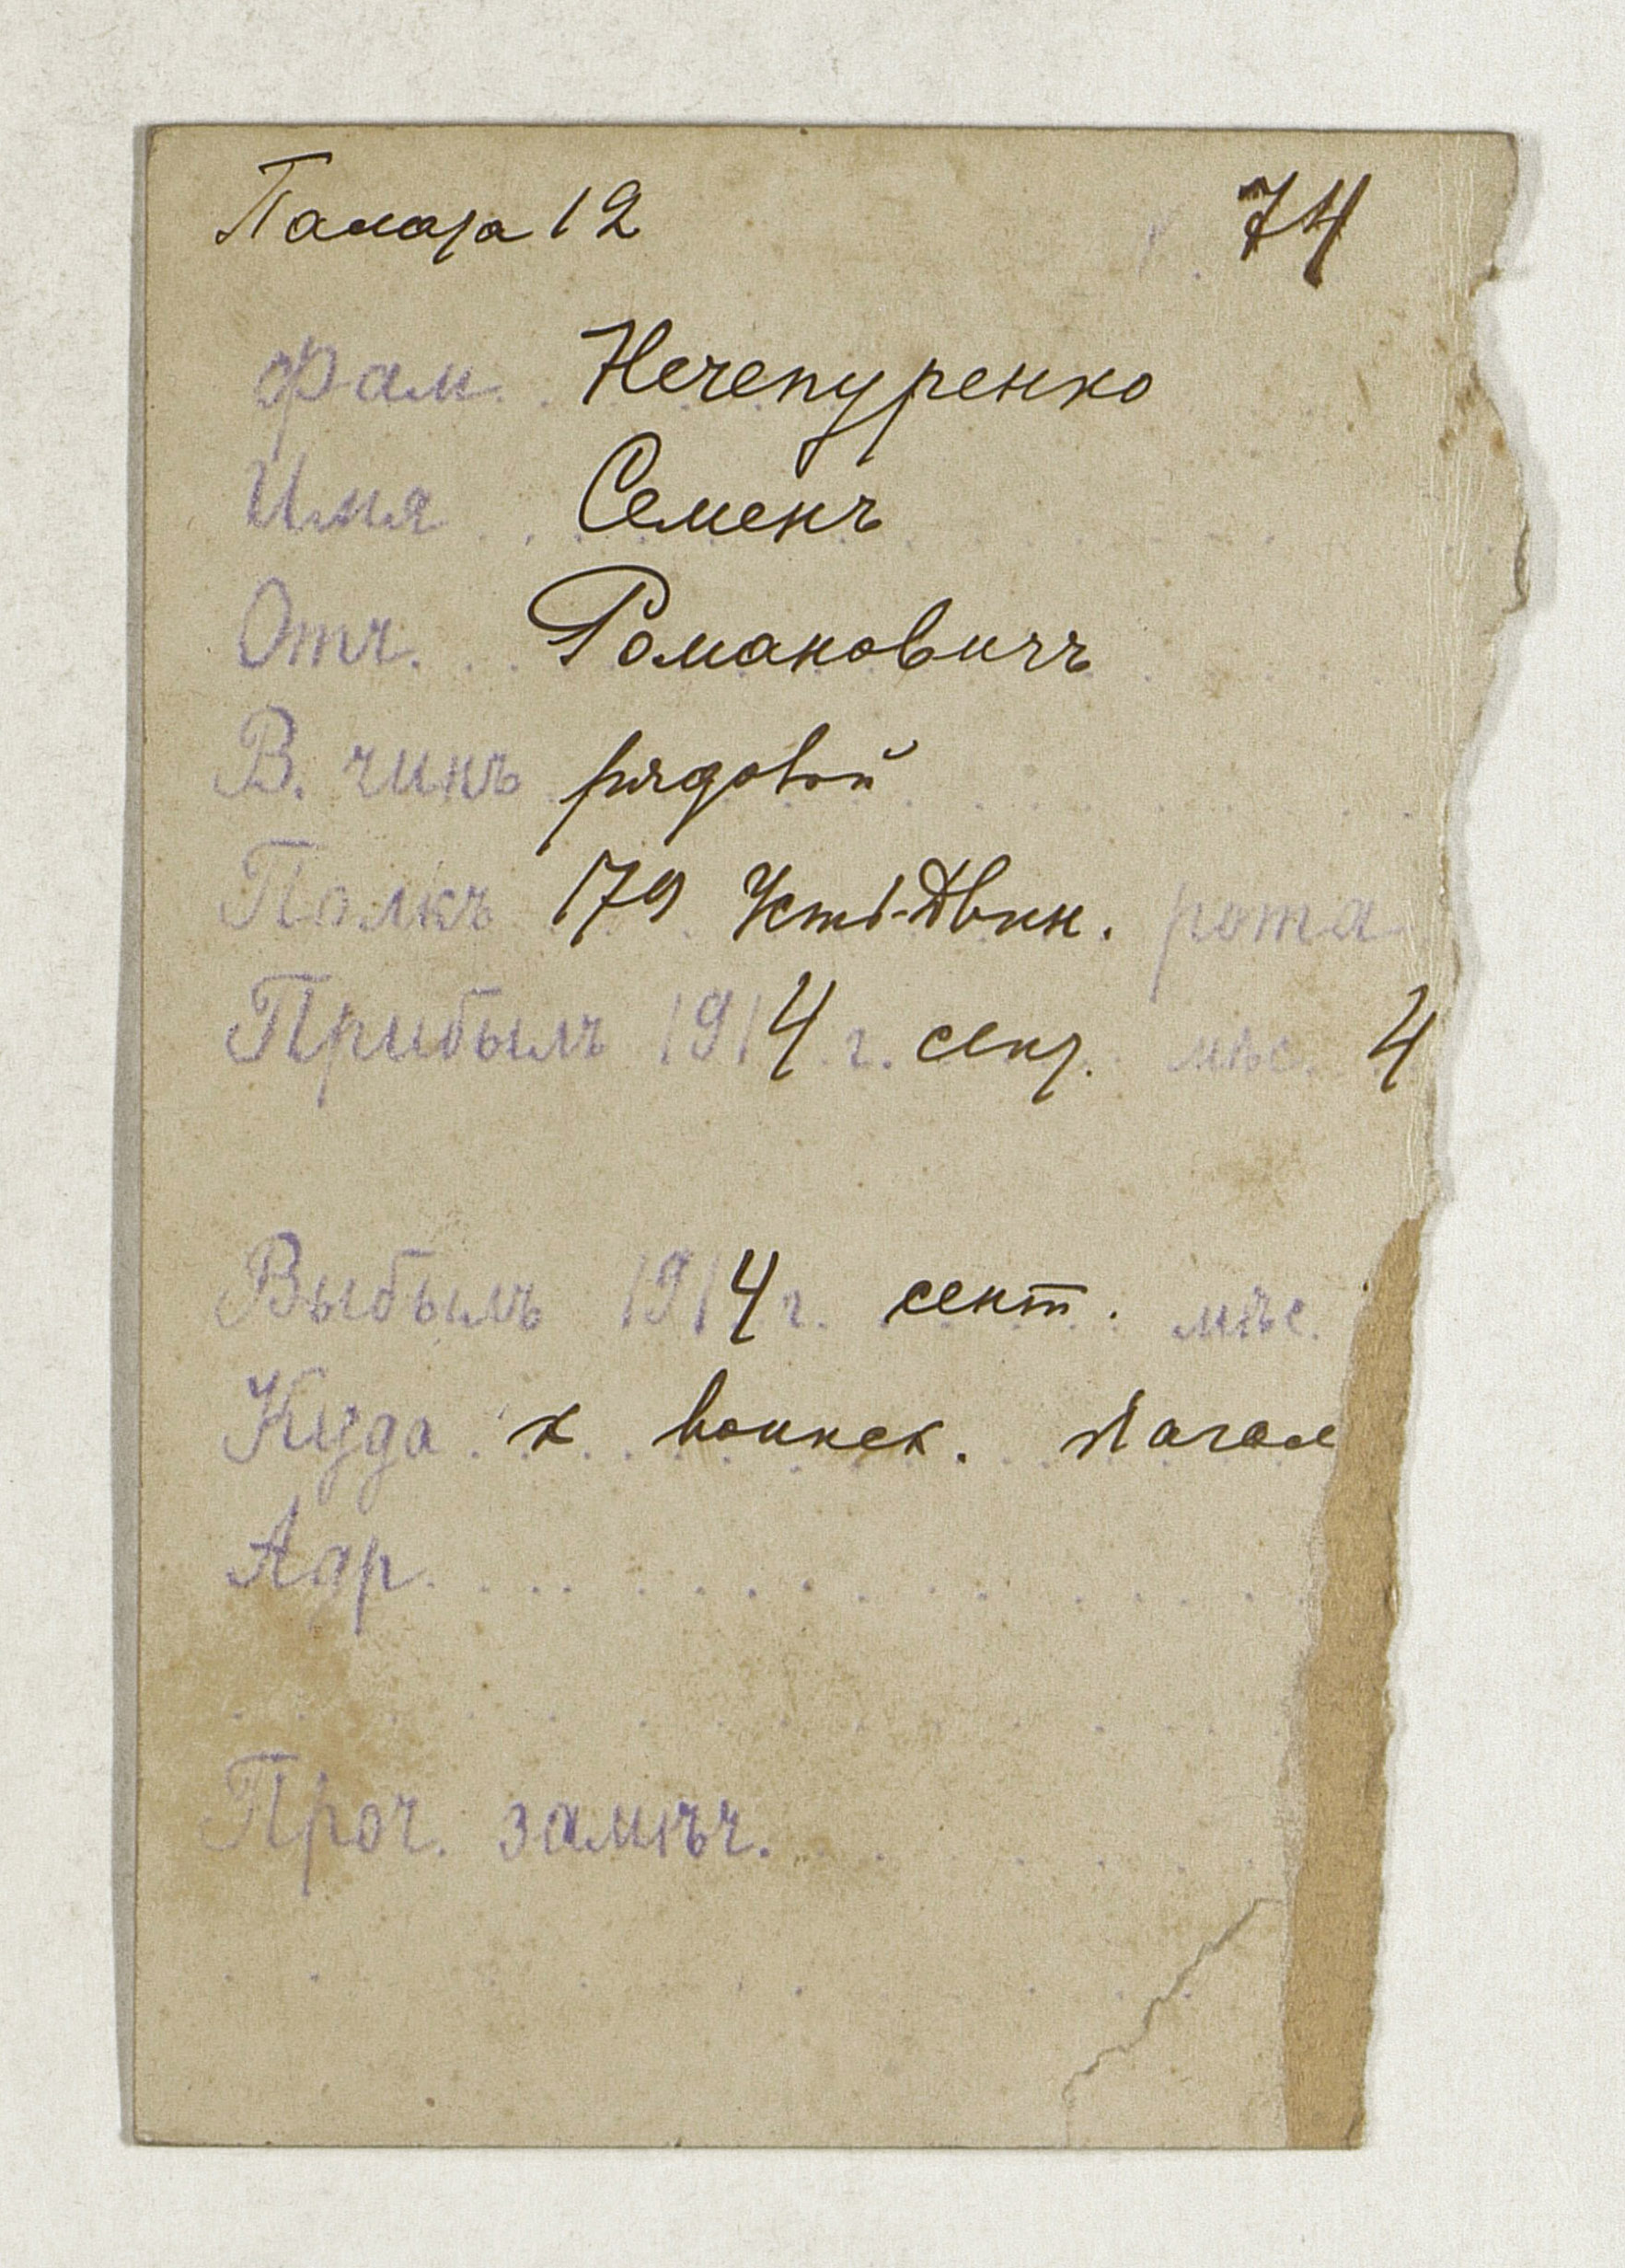 Палата 12 74
Фам. Нечепуренко
Имя Семенъ
Отч. Романовичъ
В. чинъ рядовой
Полкъ 179 Усть-Двин. рота
Прибылъ 1914 г. сент. мѣс. 4
Выбылъ 1914 г. сент. мѣс.
Куда к воинск. Начал
Адр.
Проч. замѣч.